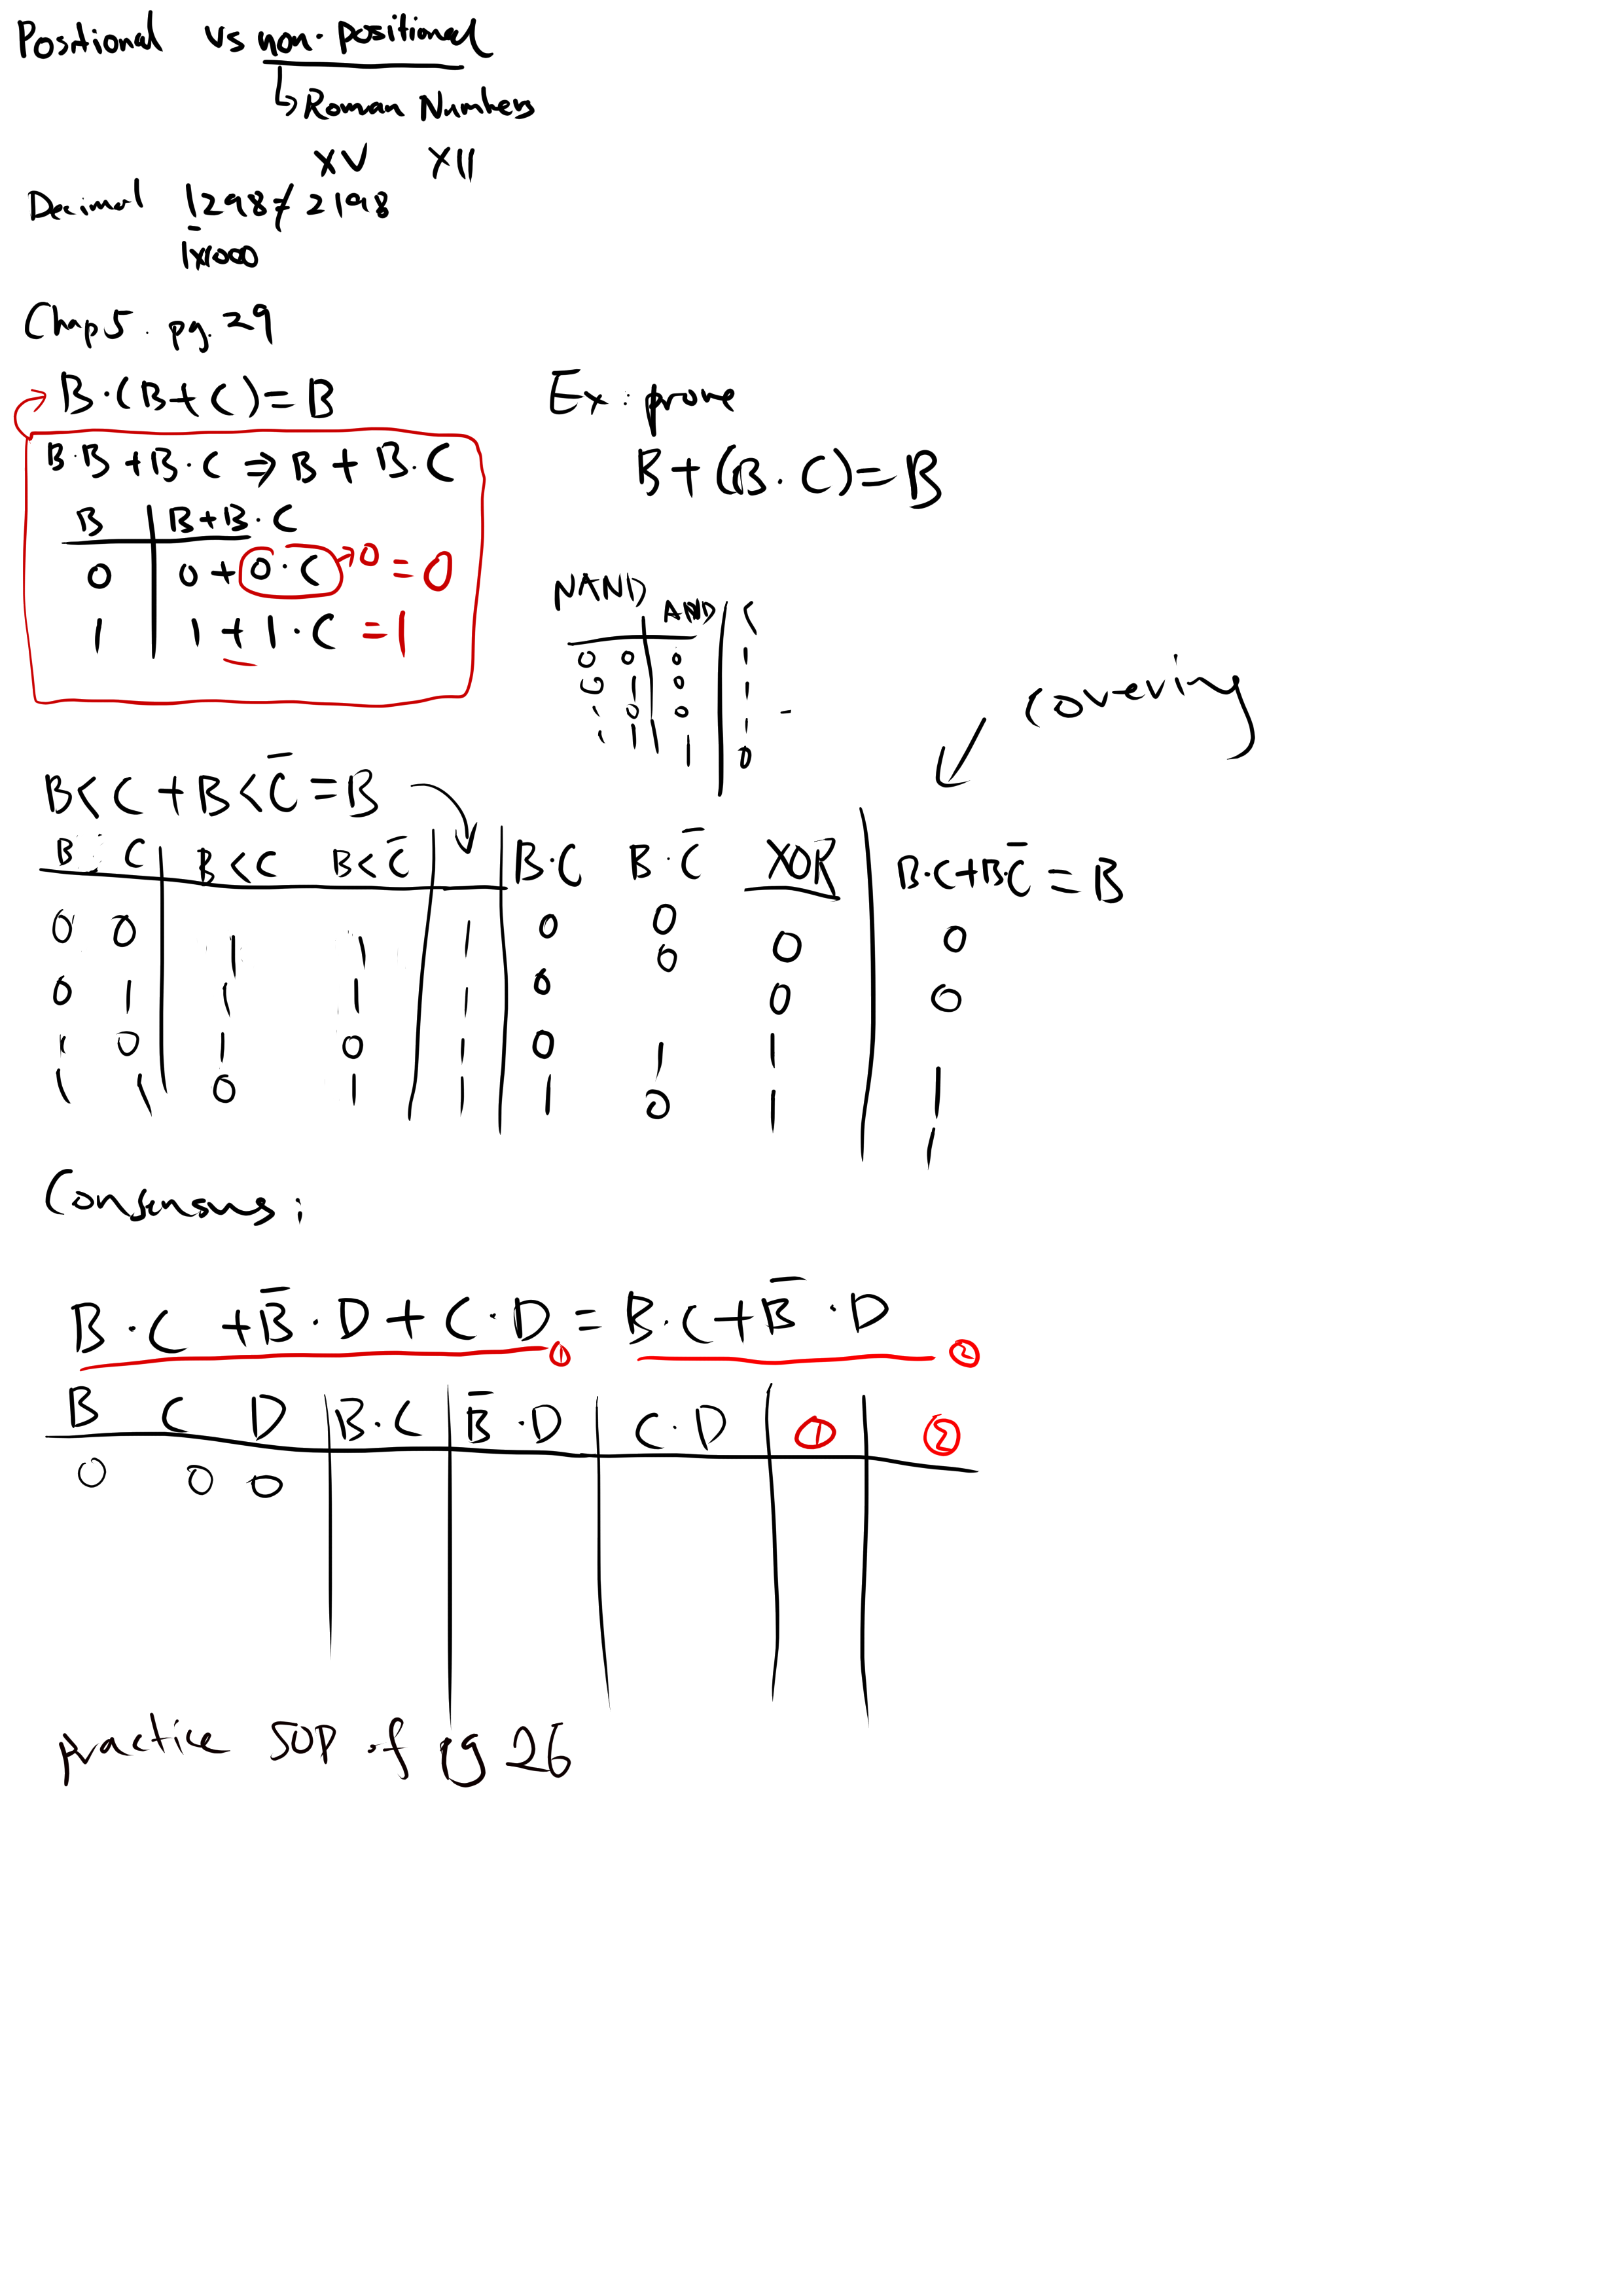 Positional vs non-positional
↳ Roman Numbers
XV XII
Decimal 1298 ≠ 2198
1x1000
Chap 5. pg. 29
B·(B+C)=B
B·B+B·C ⇒ B+B·C
B | B+B·C
0 | 0+0·C →0 =0
1 | 1+1·C =1
Ex: prove
B+(B·C)=B
NAND AND <
0 0 0 1
0 1 0 1
1 0 0 1 -
1 1 1 0
covering
B<C+B<C̅=B
B C B<C B<C̅ B·C B·C̅ XOR B·C+B·C̅=B
0 0 1 1 1 0 0 0 0
0 1 1 1 1 0 0 0 0
1 0 1 0 1 0 1 1 1
1 1 0 1 1 1 0 1 1
Consensus:
B·C+B̅·D+C·D=B·C+B̅·D
① ②
B C D B·C B̅·D C·D ① ②
0 0 0
practice SOP of pg 26